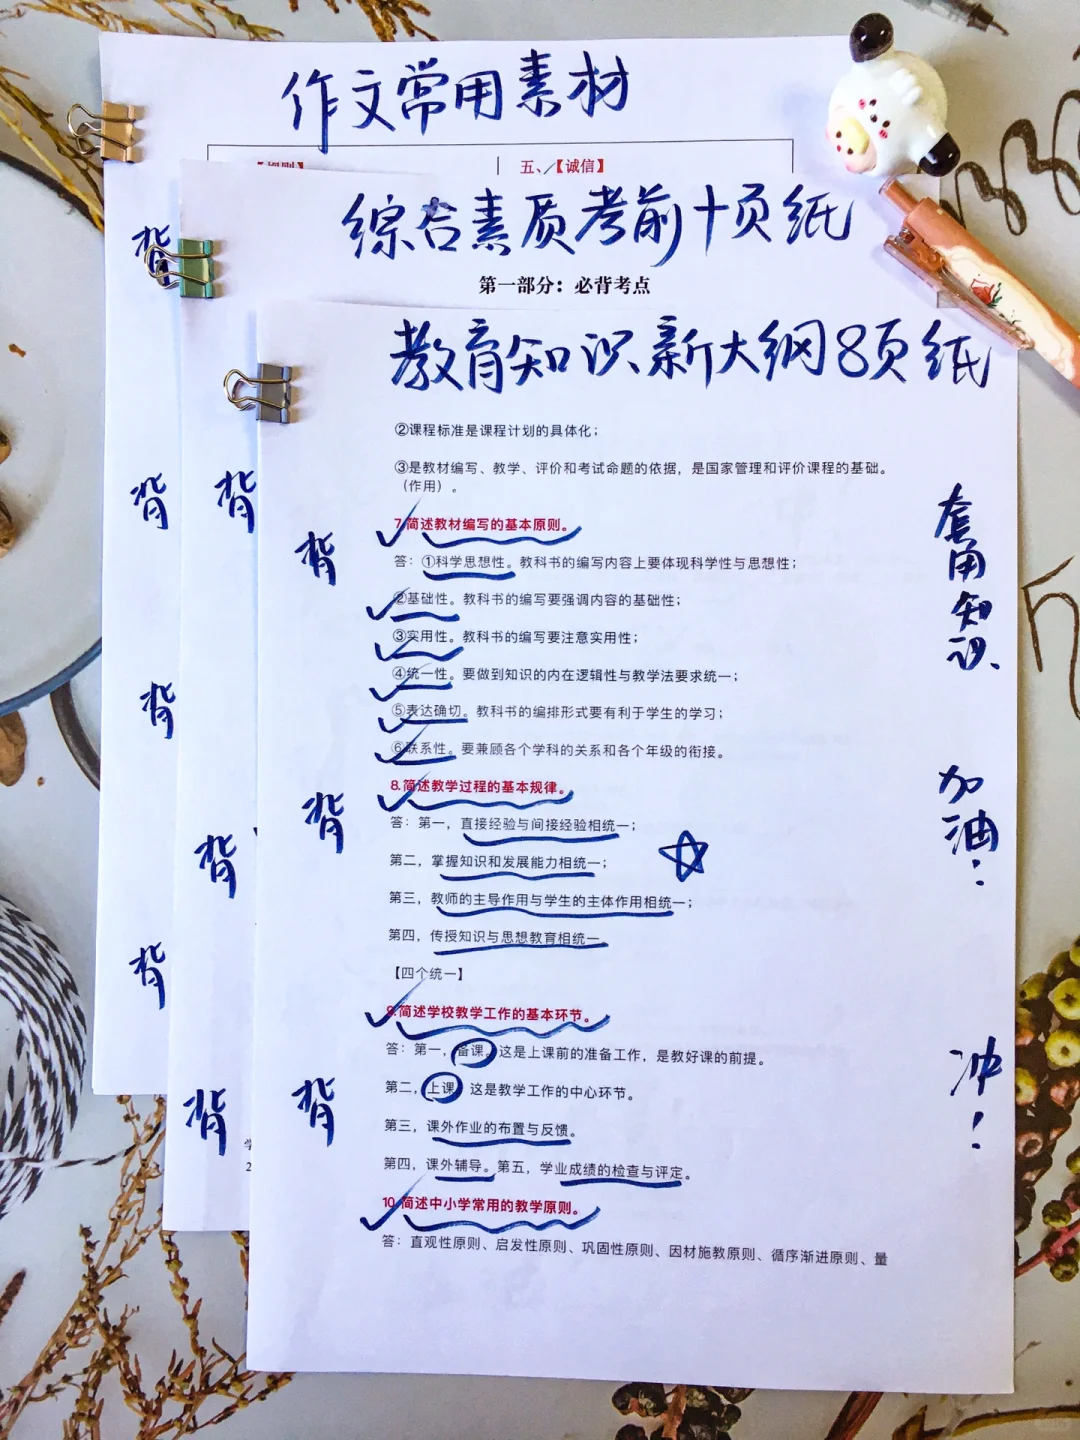 作文常用素材
五、【诚信】
背
综合素质考前十页纸
第一部分：必背考点
教育知识新大纲8页纸
②课程标准是课程计划的具体化；
③是教材编写、教学、评价和考试命题的依据，是国家管理和评价课程的基础。
（作用）。
背
背
套用知识
7.简述教材编写的基本原则。
背
答：①科学思想性。教科书的编写内容上要体现科学性与思想性；
②基础性。教科书的编写要强调内容的基础性；
③实用性。教科书的编写要注意实用性；
④统一性。要做到知识的内在逻辑性与教学法要求统一；
背
⑤表达确切。教科书的编排形式要有利于学生的学习；
⑥联系性。要兼顾各个学科的关系和各个年级的衔接。
8.简述教学过程的基本规律。
加油！
背
答：第一，直接经验与间接经验相统一；
背
第二，掌握知识和发展能力相统一；
第三，教师的主导作用与学生的主体作用相统一；
第四，传授知识与思想教育相统一
背
【四个统一】
9.简述学校教学工作的基本环节。
答：第一，备课。这是上课前的准备工作，是教好课的前提。
冲！
第二，上课。这是教学工作的中心环节。
背
背
第三，课外作业的布置与反馈。
第四，课外辅导。第五，学业成绩的检查与评定。
10.简述中小学常用的教学原则。
答：直观性原则、启发性原则、巩固性原则、因材施教原则、循序渐进原则、量